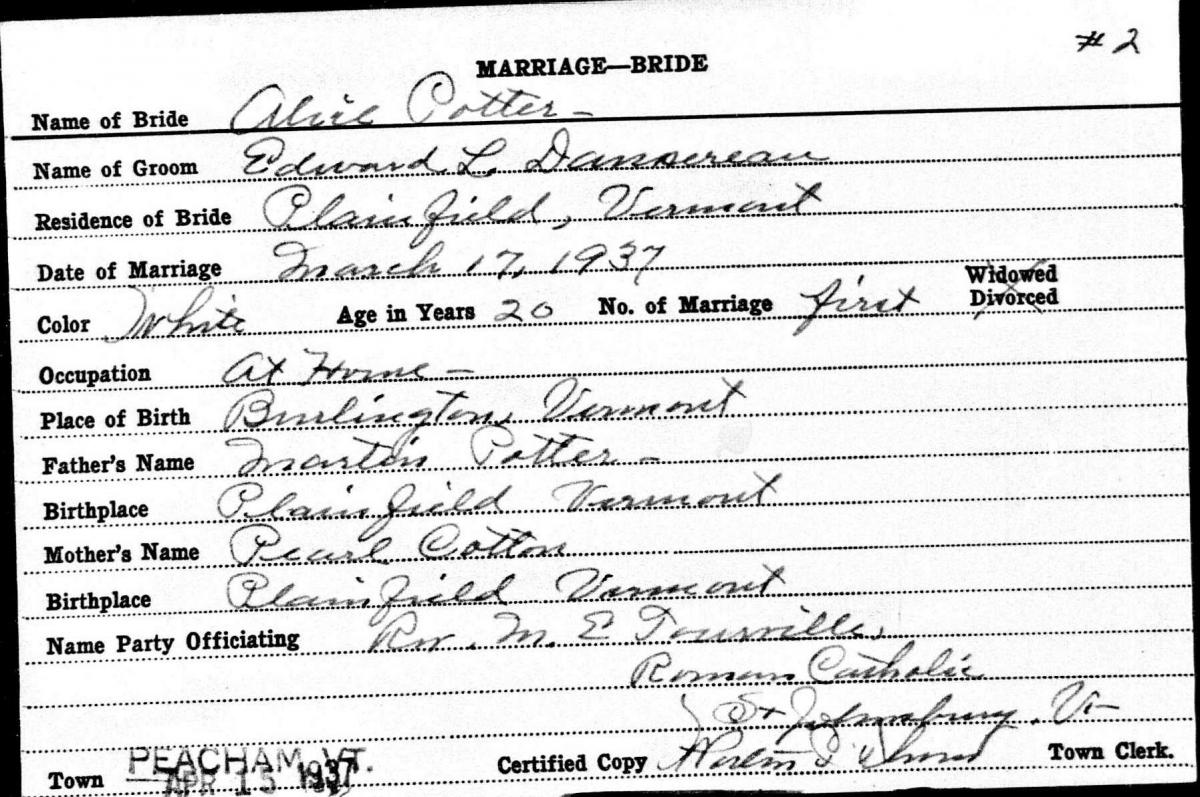 # 2
MARRIAGE—BRIDE
Name of Bride Alice Potter -
Name of Groom Edward L. Dansereau
Residence of Bride Plainfield, Vermont
Date of Marriage March 17, 1937
Widowed
Color White Age in Years 20 No. of Marriage first Divorced
Occupation At Home -
Place of Birth Burlington, Vermont
Father's Name Martin Potter -
Birthplace Plainfield Vermont
Mother's Name Pearl Cotton
Birthplace Plainfield Vermont
Name Party Officiating Rev. M. E Tourville,
Roman Catholic
St Johnsbury, Vt
Town PEACHAM, VT. Certified Copy Town Clerk.
APR 15 1937